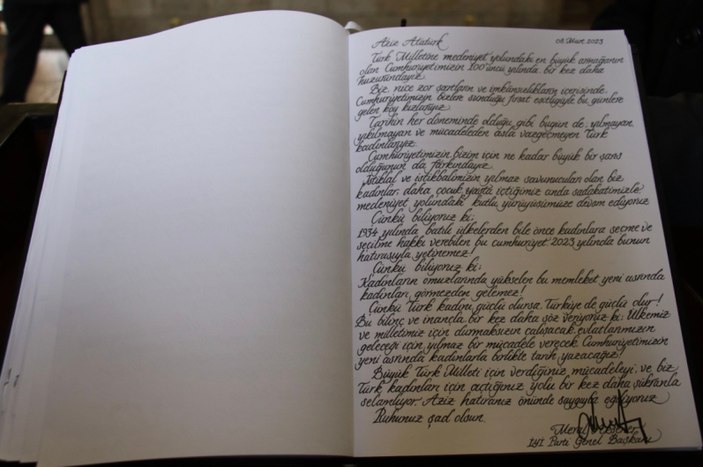 Aziz Atatürk
08 Mart 2023
Türk Milletine medeniyet yolundaki en büyük armağanın
olan Cumhuriyetimizin 100'üncü yılında bir kez daha
huzurundayız.
Biz, nice zor şartların ve imkânsızlıkların içerisinde,
Cumhuriyetimizin bizlere sunduğu fırsat eşitliğiyle bu günlere
gelen köy kızlarıyız.
Tarihin her döneminde olduğu gibi bugün de, yılmayan,
yıkılmayan ve mücadeleden asla vazgeçmeyen Türk
kadınlarıyız.
Cumhuriyetimizin bizim için ne kadar büyük bir şans
olduğunun da farkındayız.
İstiklal ve istikbalimizin yılmaz savunucuları olan biz
kadınlar; daha çocuk yaşta içtiğimiz anda sadakatimizle,
medeniyet yolundaki kutlu yürüyüşümüze devam ediyoruz.
Çünkü biliyoruz ki;
1934 yılında batılı ülkelerden bile önce kadınlara seçme ve
seçilme hakkı verebilen bu cumhuriyet 2023 yılında bunun
hatırasıyla yetinemez!
Çünkü biliyoruz ki;
Kadınların omuzlarında yükselen bu memleket yeni asrında
kadınları görmezden gelemez!
Çünkü Türk kadını güçlü olursa, Türkiye de güçlü olur!
Bu bilinç ve inançla bir kez daha söz veriyoruz ki: Ülkemiz
ve milletimiz için durmaksızın çalışacak, evlatlarımızın
geleceği için yılmaz bir mücadele verecek, Cumhuriyetimizin
yeni asrında kadınlarla birlikte tarih yazacağız!
Büyük Türk Milleti için verdiğiniz mücadeleyi ve biz
Türk kadınları için açtığınız yolu bir kez daha şükranla
selamlıyor; Aziz hatıranız önünde saygıyla eğiliyoruz.
Ruhunuz şad olsun.
Meral Akşener
İYİ Parti Genel Başkanı